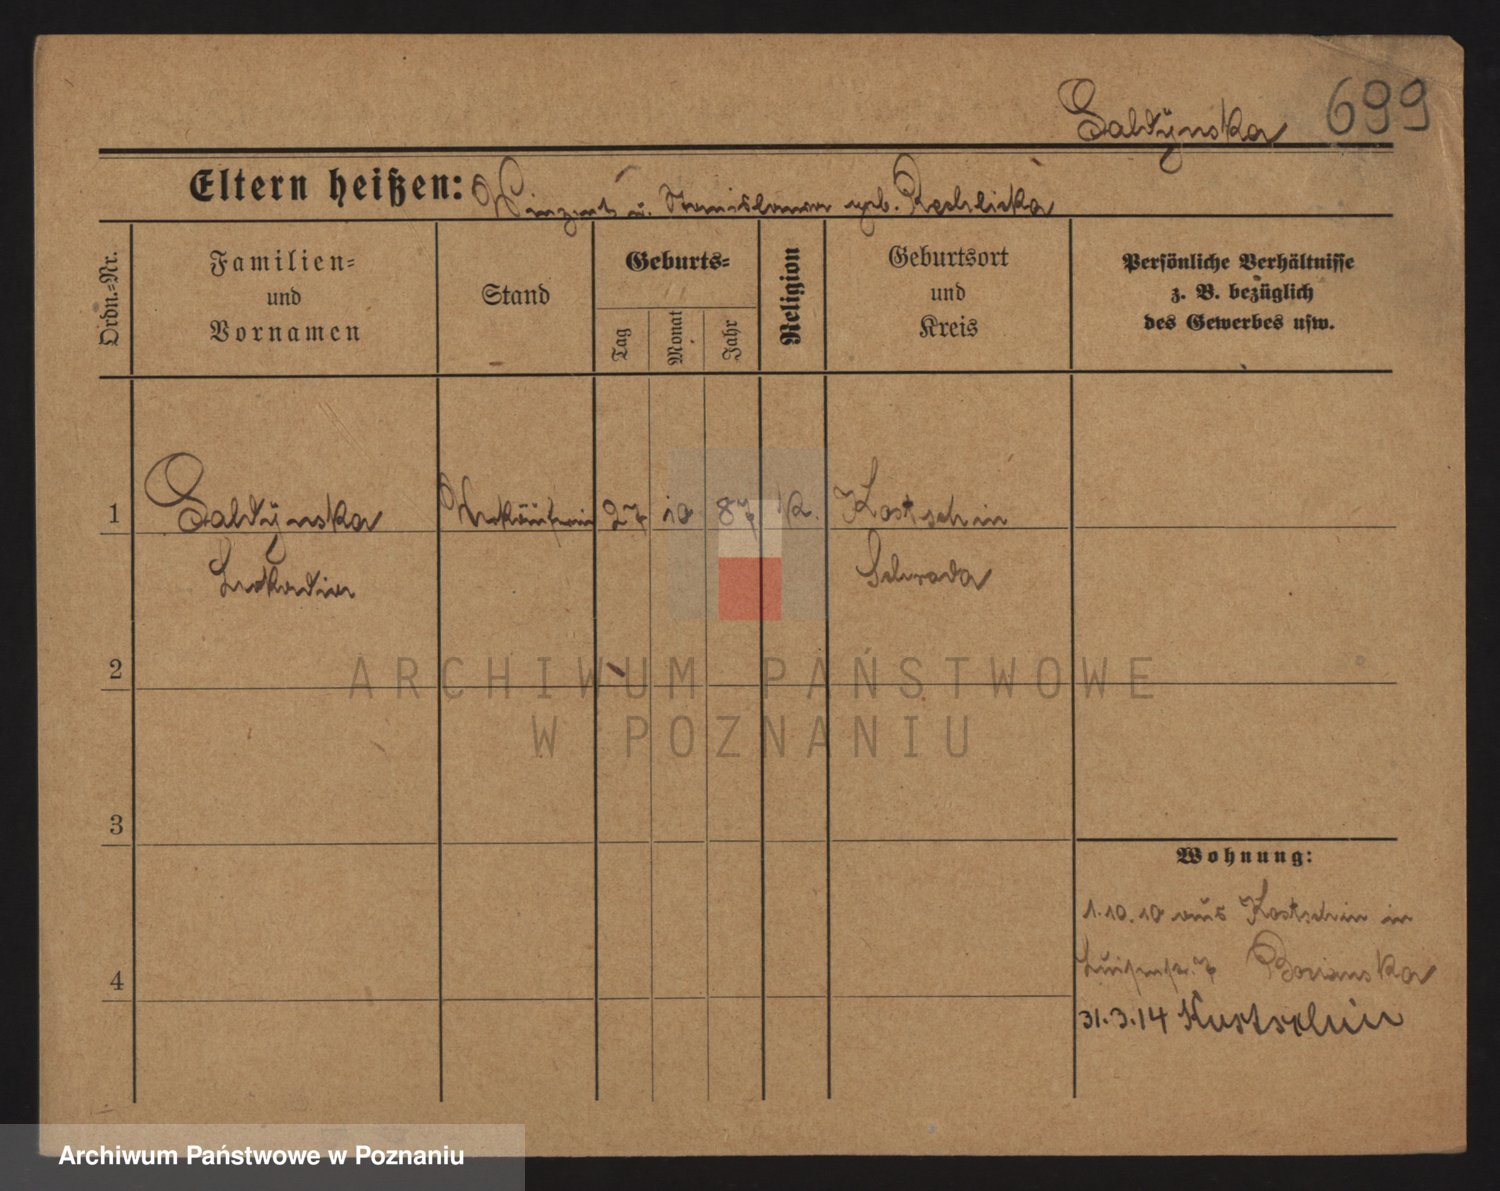 Saldynska 699
Eltern heißen: Vinzent u. Stanislawa geb. Rechlicka
Ordn.=Nr.
Familien=
und
Vornamen
Stand
Geburts=
Tag
Monat
Jahr
Religion
Geburtsort
und
Kreis
Persönliche Verhältnisse
z. B. bezüglich
des Gewerbes usw.
1 Saldynska Verkäuferin 27 10 87 K. Kostschin
Leokadia Schroda
2
3
4
Wohnung:
1.10.10 aus Kostschin in
Luisenstr. 7
31.3.14 Kostschin
ARCHIWUM PAŃSTWOWE
W POZNANIU
Archiwum Państwowe w Poznaniu